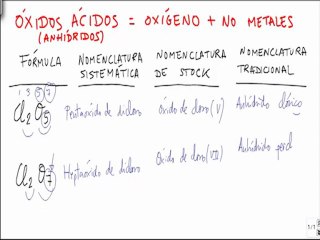 ÓXIDOS ÁCIDOS = OXÍGENO + NO METALES
(ANHÍDRIDOS)
FÓRMULA NOMENCLATURA SISTEMÁTICA NOMENCLATURA DE STOCK NOMENCLATURA TRADICIONAL
1 3 5 7
Cl2 O5 Pentaóxido de dicloro óxido de cloro (V) Anhídrido clórico
Cl2 O7 Heptaóxido de dicloro Óxido de cloro (VII) Anhídrido percl